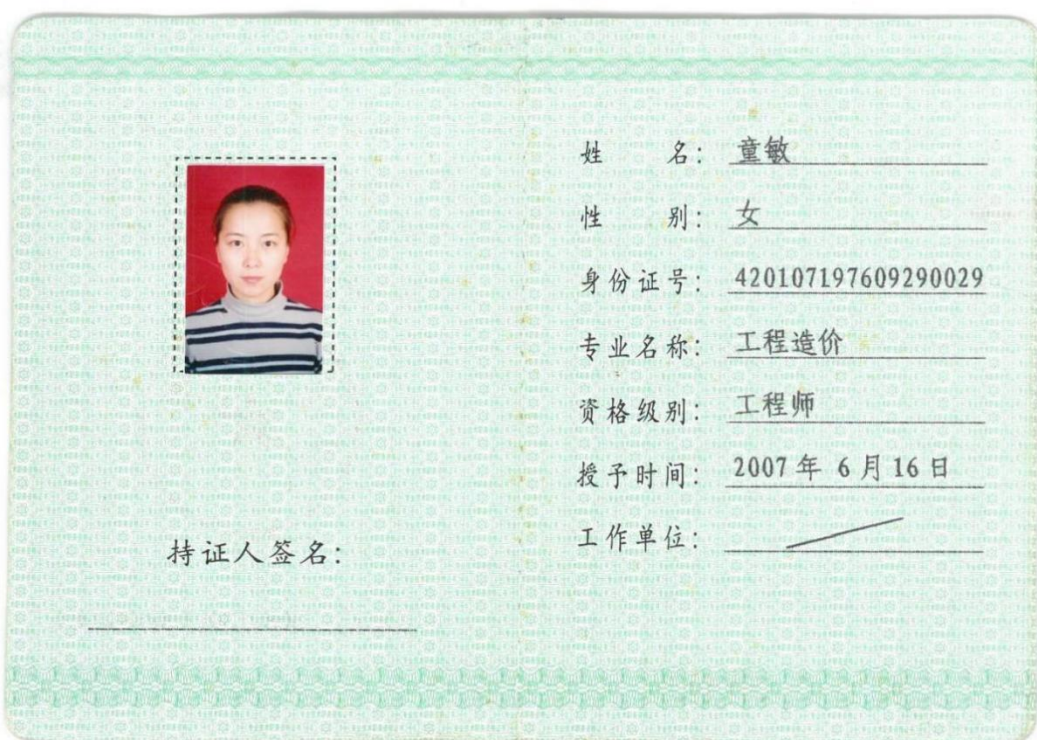 持证人签名：
姓 名： 童敏
性 别： 女
身份证号： 420107197609290029
专业名称： 工程造价
资格级别： 工程师
授予时间： 2007 年 6 月 16 日
工作单位：